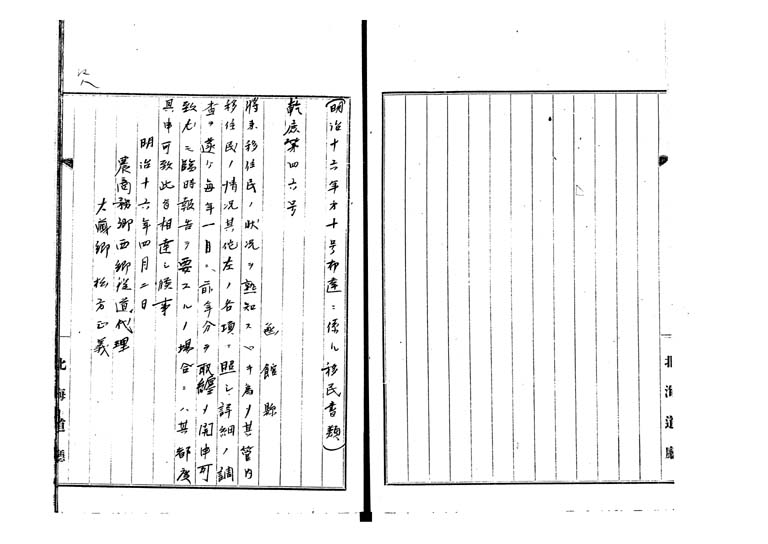 (明治十六年第十号布達ニ係ル移民書類)
乾底第四六号
函館縣
将来移住民ノ状況ヲ熟知スヘキ為メ其管内
移住民ノ情況其他左ノ各項ニ照シ詳細ノ調
査ヲ遂ケ毎年一月ニ前年分ヲ取纏メ開申可
致尤モ臨時報告ヲ要スルノ場合ニハ其都度
具申可致此旨相達シ候事
明治十六年四月二日
農商務卿西郷従道代理
大藏卿 松方正義
北海道廳
北海道廳